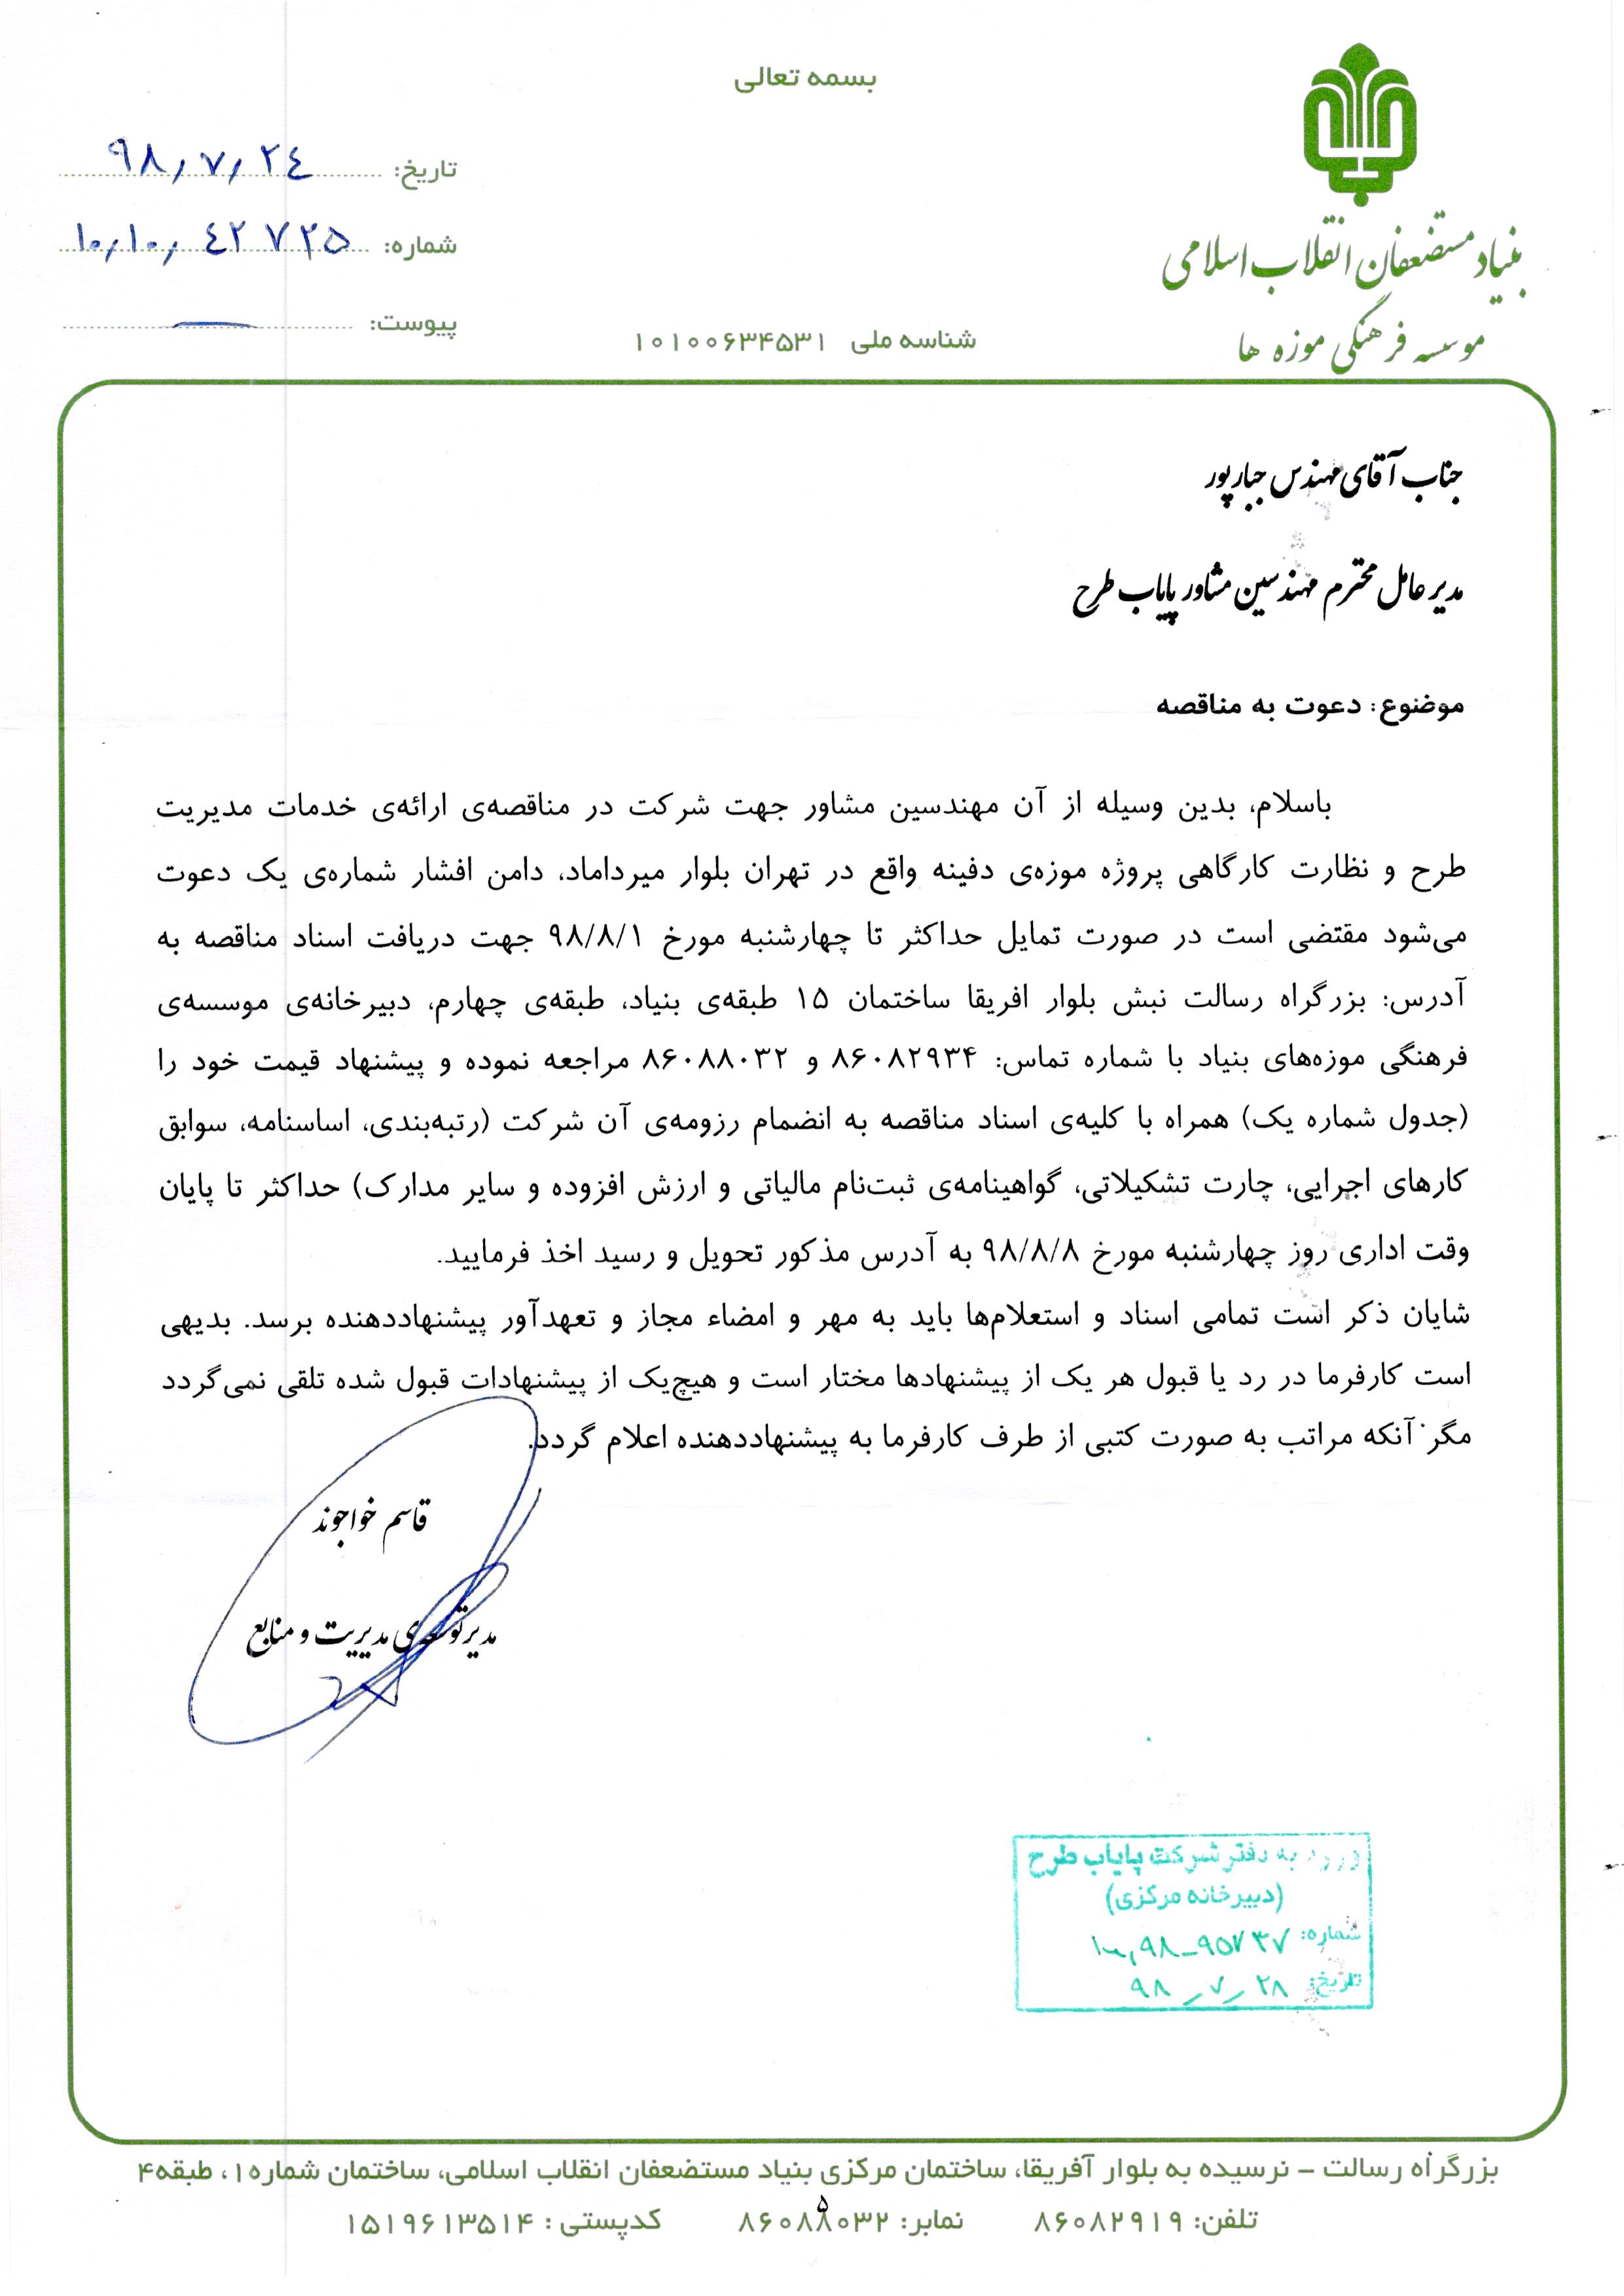 بسمه تعالی
بنیاد مستضعفان انقلاب اسلامی
موسسه فرهنگی موزه ها
تاریخ: ۹۸/۷/۲۴
شماره: ۱۰/۱۰/۴۲۷۲۵
پیوست: —
شناسه ملی ۱۰۱۰۰۶۳۴۵۳۱
جناب آقای مهندس جبارپور
مدیرعامل محترم مهندسین مشاور پایاب طرح
موضوع: دعوت به مناقصه
باسلام، بدین وسیله از آن مهندسین مشاور جهت شرکت در مناقصه‌ی ارائه‌ی خدمات مدیریت
طرح و نظارت کارگاهی پروژه موزه‌ی دفینه واقع در تهران بلوار میرداماد، دامن افشار شماره‌ی یک دعوت
می‌شود مقتضی است در صورت تمایل حداکثر تا چهارشنبه مورخ ۹۸/۸/۱ جهت دریافت اسناد مناقصه به
آدرس: بزرگراه رسالت نبش بلوار افریقا ساختمان ۱۵ طبقه‌ی بنیاد، طبقه‌ی چهارم، دبیرخانه‌ی موسسه‌ی
فرهنگی موزه‌های بنیاد با شماره تماس: ۸۶۰۸۲۹۳۴ و ۸۶۰۸۸۰۳۲ مراجعه نموده و پیشنهاد قیمت خود را
(جدول شماره یک) همراه با کلیه‌ی اسناد مناقصه به انضمام رزومه‌ی آن شرکت (رتبه‌بندی، اساسنامه، سوابق
کارهای اجرایی، چارت تشکیلاتی، گواهینامه‌ی ثبت‌نام مالیاتی و ارزش افزوده و سایر مدارک) حداکثر تا پایان
وقت اداری روز چهارشنبه مورخ ۹۸/۸/۸ به آدرس مذکور تحویل و رسید اخذ فرمایید.
شایان ذکر است تمامی اسناد و استعلام‌ها باید به مهر و امضاء مجاز و تعهدآور پیشنهاددهنده برسد. بدیهی
است کارفرما در رد یا قبول هر یک از پیشنهادها مختار است و هیچ‌یک از پیشنهادات قبول شده تلقی نمی‌گردد
مگر آنکه مراتب به صورت کتبی از طرف کارفرما به پیشنهاددهنده اعلام گردد.
قاسم خواجوند
مدیر توسعه‌ی مدیریت و منابع
ورود به دفتر شرکت پایاب طرح
(دبیرخانه مرکزی)
شماره: ۹۸-۹۵۷۳۷
تاریخ: ۹۸/۷/۲۸
بزرگراه رسالت – نرسیده به بلوار آفریقا، ساختمان مرکزی بنیاد مستضعفان انقلاب اسلامی، ساختمان شماره۱، طبقه۴
تلفن: ۸۶۰۸۲۹۱۹ نمابر: ۸۶۰۸۸۰۳۲ کدپستی: ۱۵۱۹۶۱۳۵۱۴